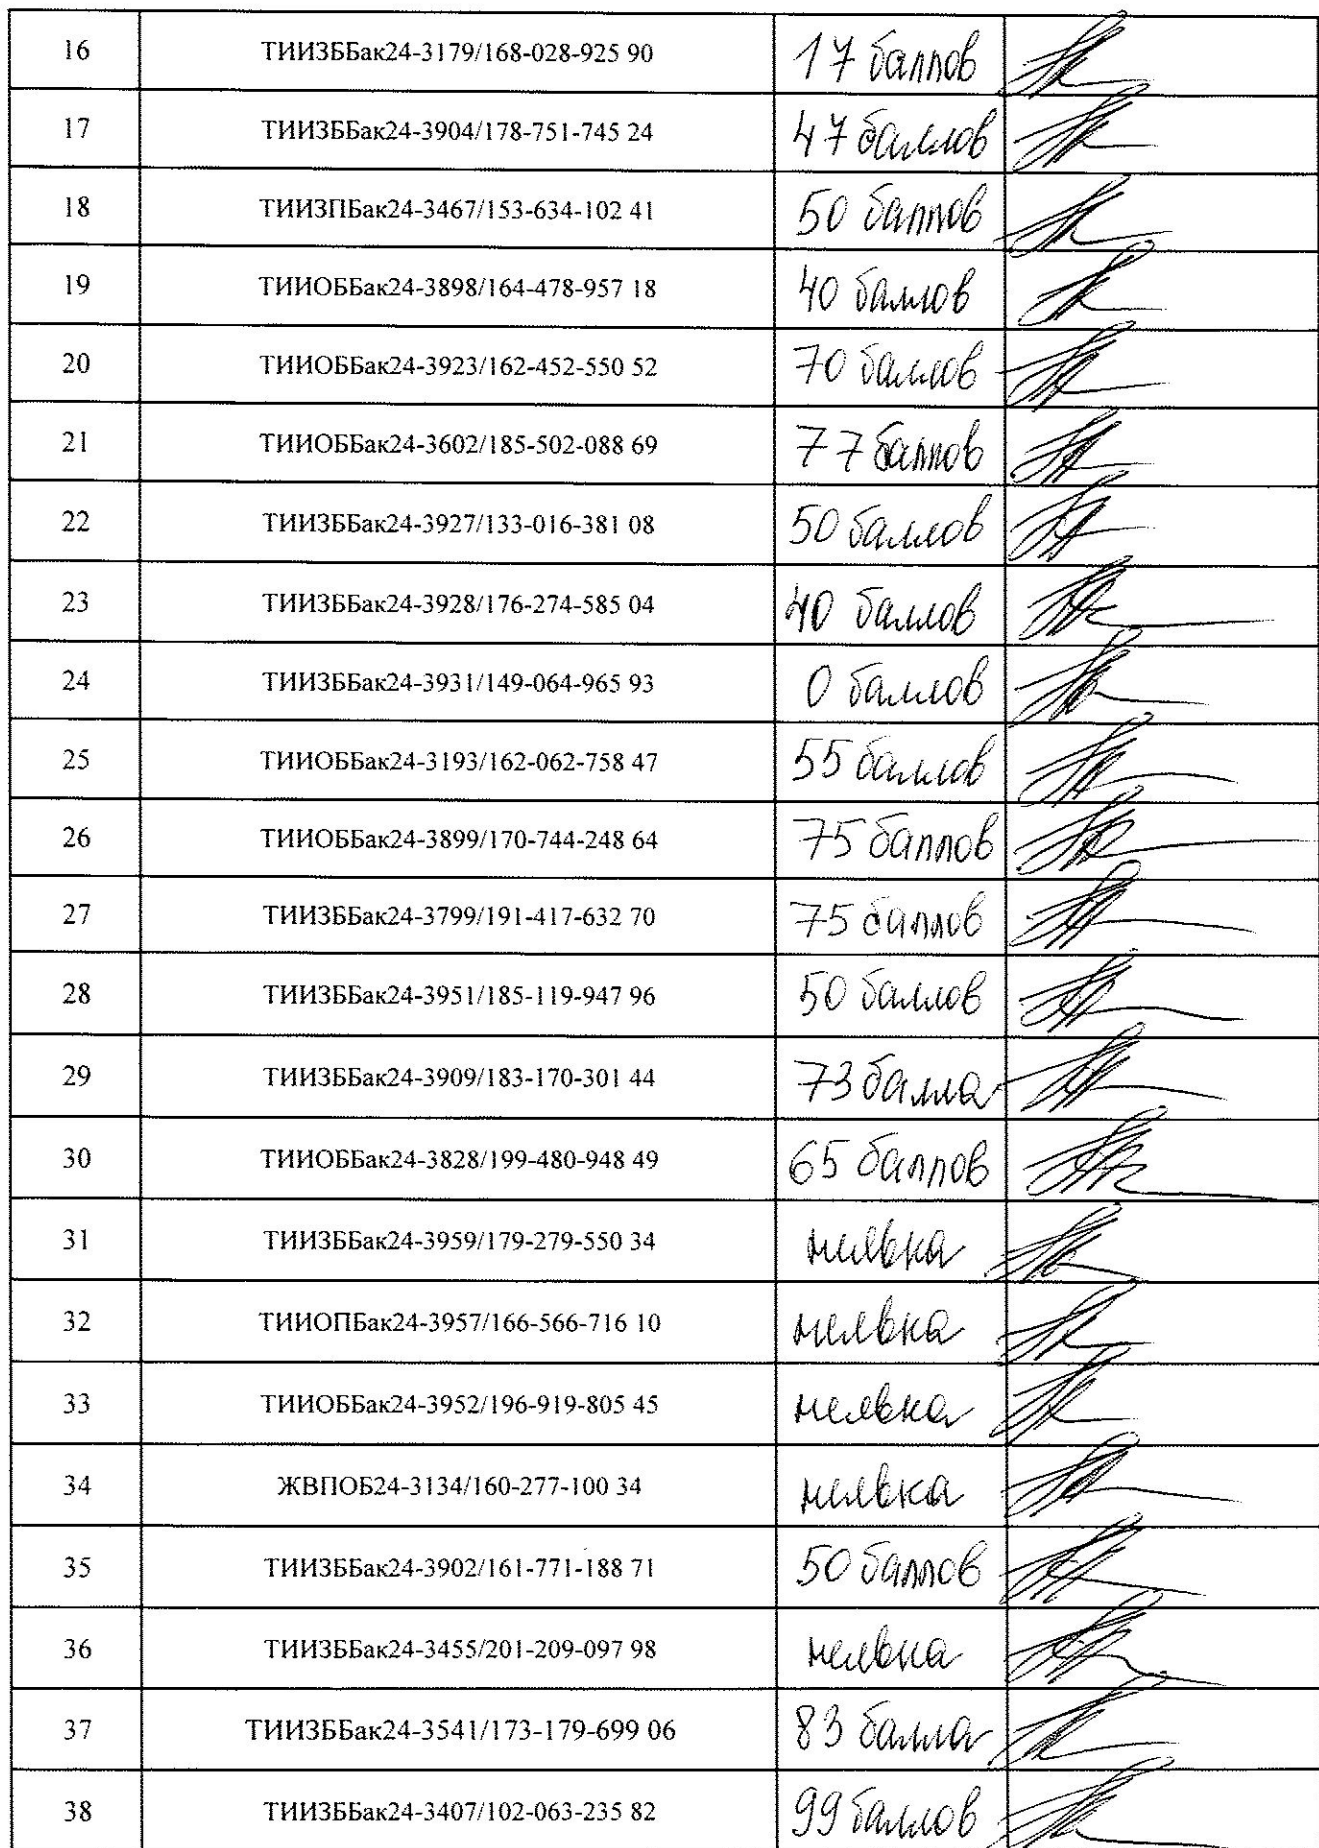 16 ТИИЗББак24-3179/168-028-925 90 17 баллов
17 ТИИЗББак24-3904/178-751-745 24 47 баллов
18 ТИИЗПБак24-3467/153-634-102 41 50 баллов
19 ТИИОББак24-3898/164-478-957 18 40 баллов
20 ТИИОББак24-3923/162-452-550 52 70 баллов
21 ТИИОББак24-3602/185-502-088 69 77 баллов
22 ТИИЗББак24-3927/133-016-381 08 50 баллов
23 ТИИЗББак24-3928/176-274-585 04 40 баллов
24 ТИИЗББак24-3931/149-064-965 93 0 баллов
25 ТИИОББак24-3193/162-062-758 47 55 баллов
26 ТИИОББак24-3899/170-744-248 64 75 баллов
27 ТИИЗББак24-3799/191-417-632 70 75 баллов
28 ТИИЗББак24-3951/185-119-947 96 50 баллов
29 ТИИЗББак24-3909/183-170-301 44 73 балла
30 ТИИОББак24-3828/199-480-948 49 65 баллов
31 ТИИЗББак24-3959/179-279-550 34 неявка
32 ТИИОПБак24-3957/166-566-716 10 неявка
33 ТИИОББак24-3952/196-919-805 45 неявка
34 ЖВПОБ24-3134/160-277-100 34 неявка
35 ТИИЗББак24-3902/161-771-188 71 50 баллов
36 ТИИЗББак24-3455/201-209-097 98 неявка
37 ТИИЗББак24-3541/173-179-699 06 83 балла
38 ТИИЗББак24-3407/102-063-235 82 99 баллов